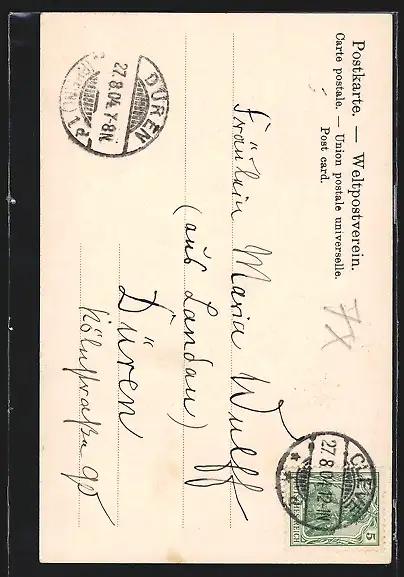 Postkarte. — Weltpostverein.
Carte postale. — Union postale universelle.
Post card.
7x
CLEVE
27.8.04. 12-1N.
5
DÜREN
27.8.04. 7-8N.
Fräulein Maria Wulff
(aus Landau)
Düren
Kölnstraße 90